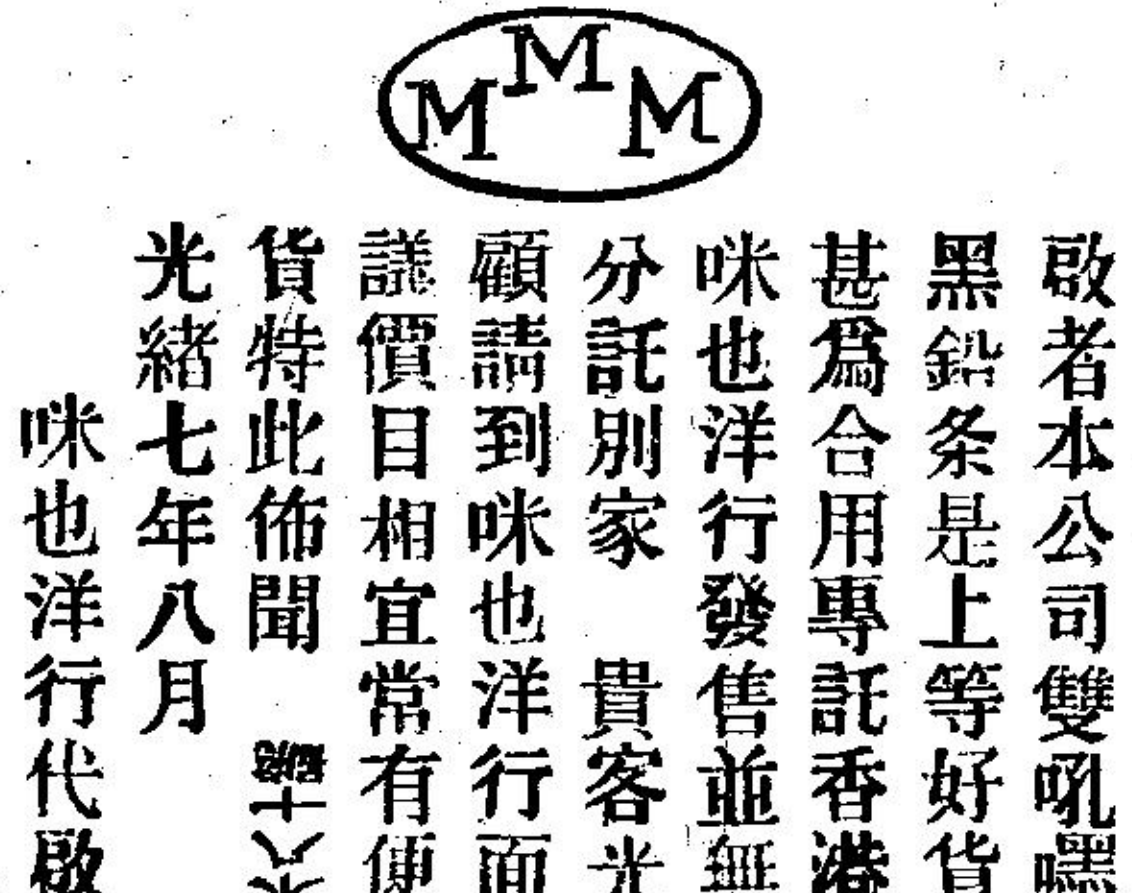 M M M
啟者本公司雙吼嘿
黑鉛条是上等好貨
甚爲合用專託香港
咪也洋行發售並無
分託別家 貴客光
顧請到咪也洋行面
議價目相宜常有便
貨特此佈聞
光緒七年八月
咪也洋行代啟